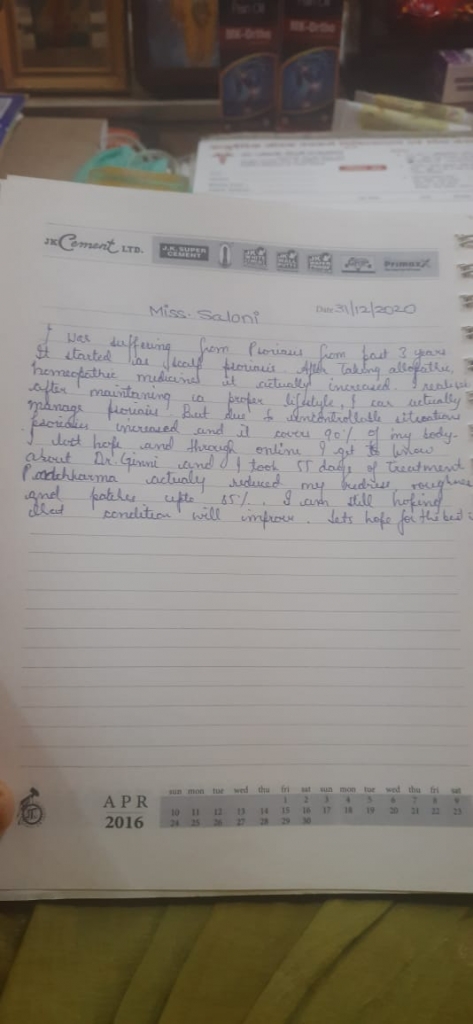 MK-Ortho
MK-Ortho
JK Cement LTD.
J.K. SUPER CEMENT
Miss. Saloni
Date 31/12/2020
I was suffering from Psoriasis from past 3 years
It started as scalp psoriasis. After Taking allopathic,
homeopathic medicines it actually increased. I realise
after maintaining a proper lifestyle, I can actually
manage psoriasis. But due to uncontrollable situations
psoriasis increased and it covers 90% of my body.
I lost hope and through online I got to know
about Dr. Ginni and I took 55 days of Treatment
Panchkharma actualy reduced my redness, roughness
and patches upto 85%. I am still hoping
that condition will improve. Lets hope for the best
APR
2016
sun mon tue wed thu fri sat sun mon tue wed thu fri sat
1 2 3 4 5 6 7 8 9
10 11 12 13 14 15 16 17 18 19 20 21 22 23
24 25 26 27 28 29 30